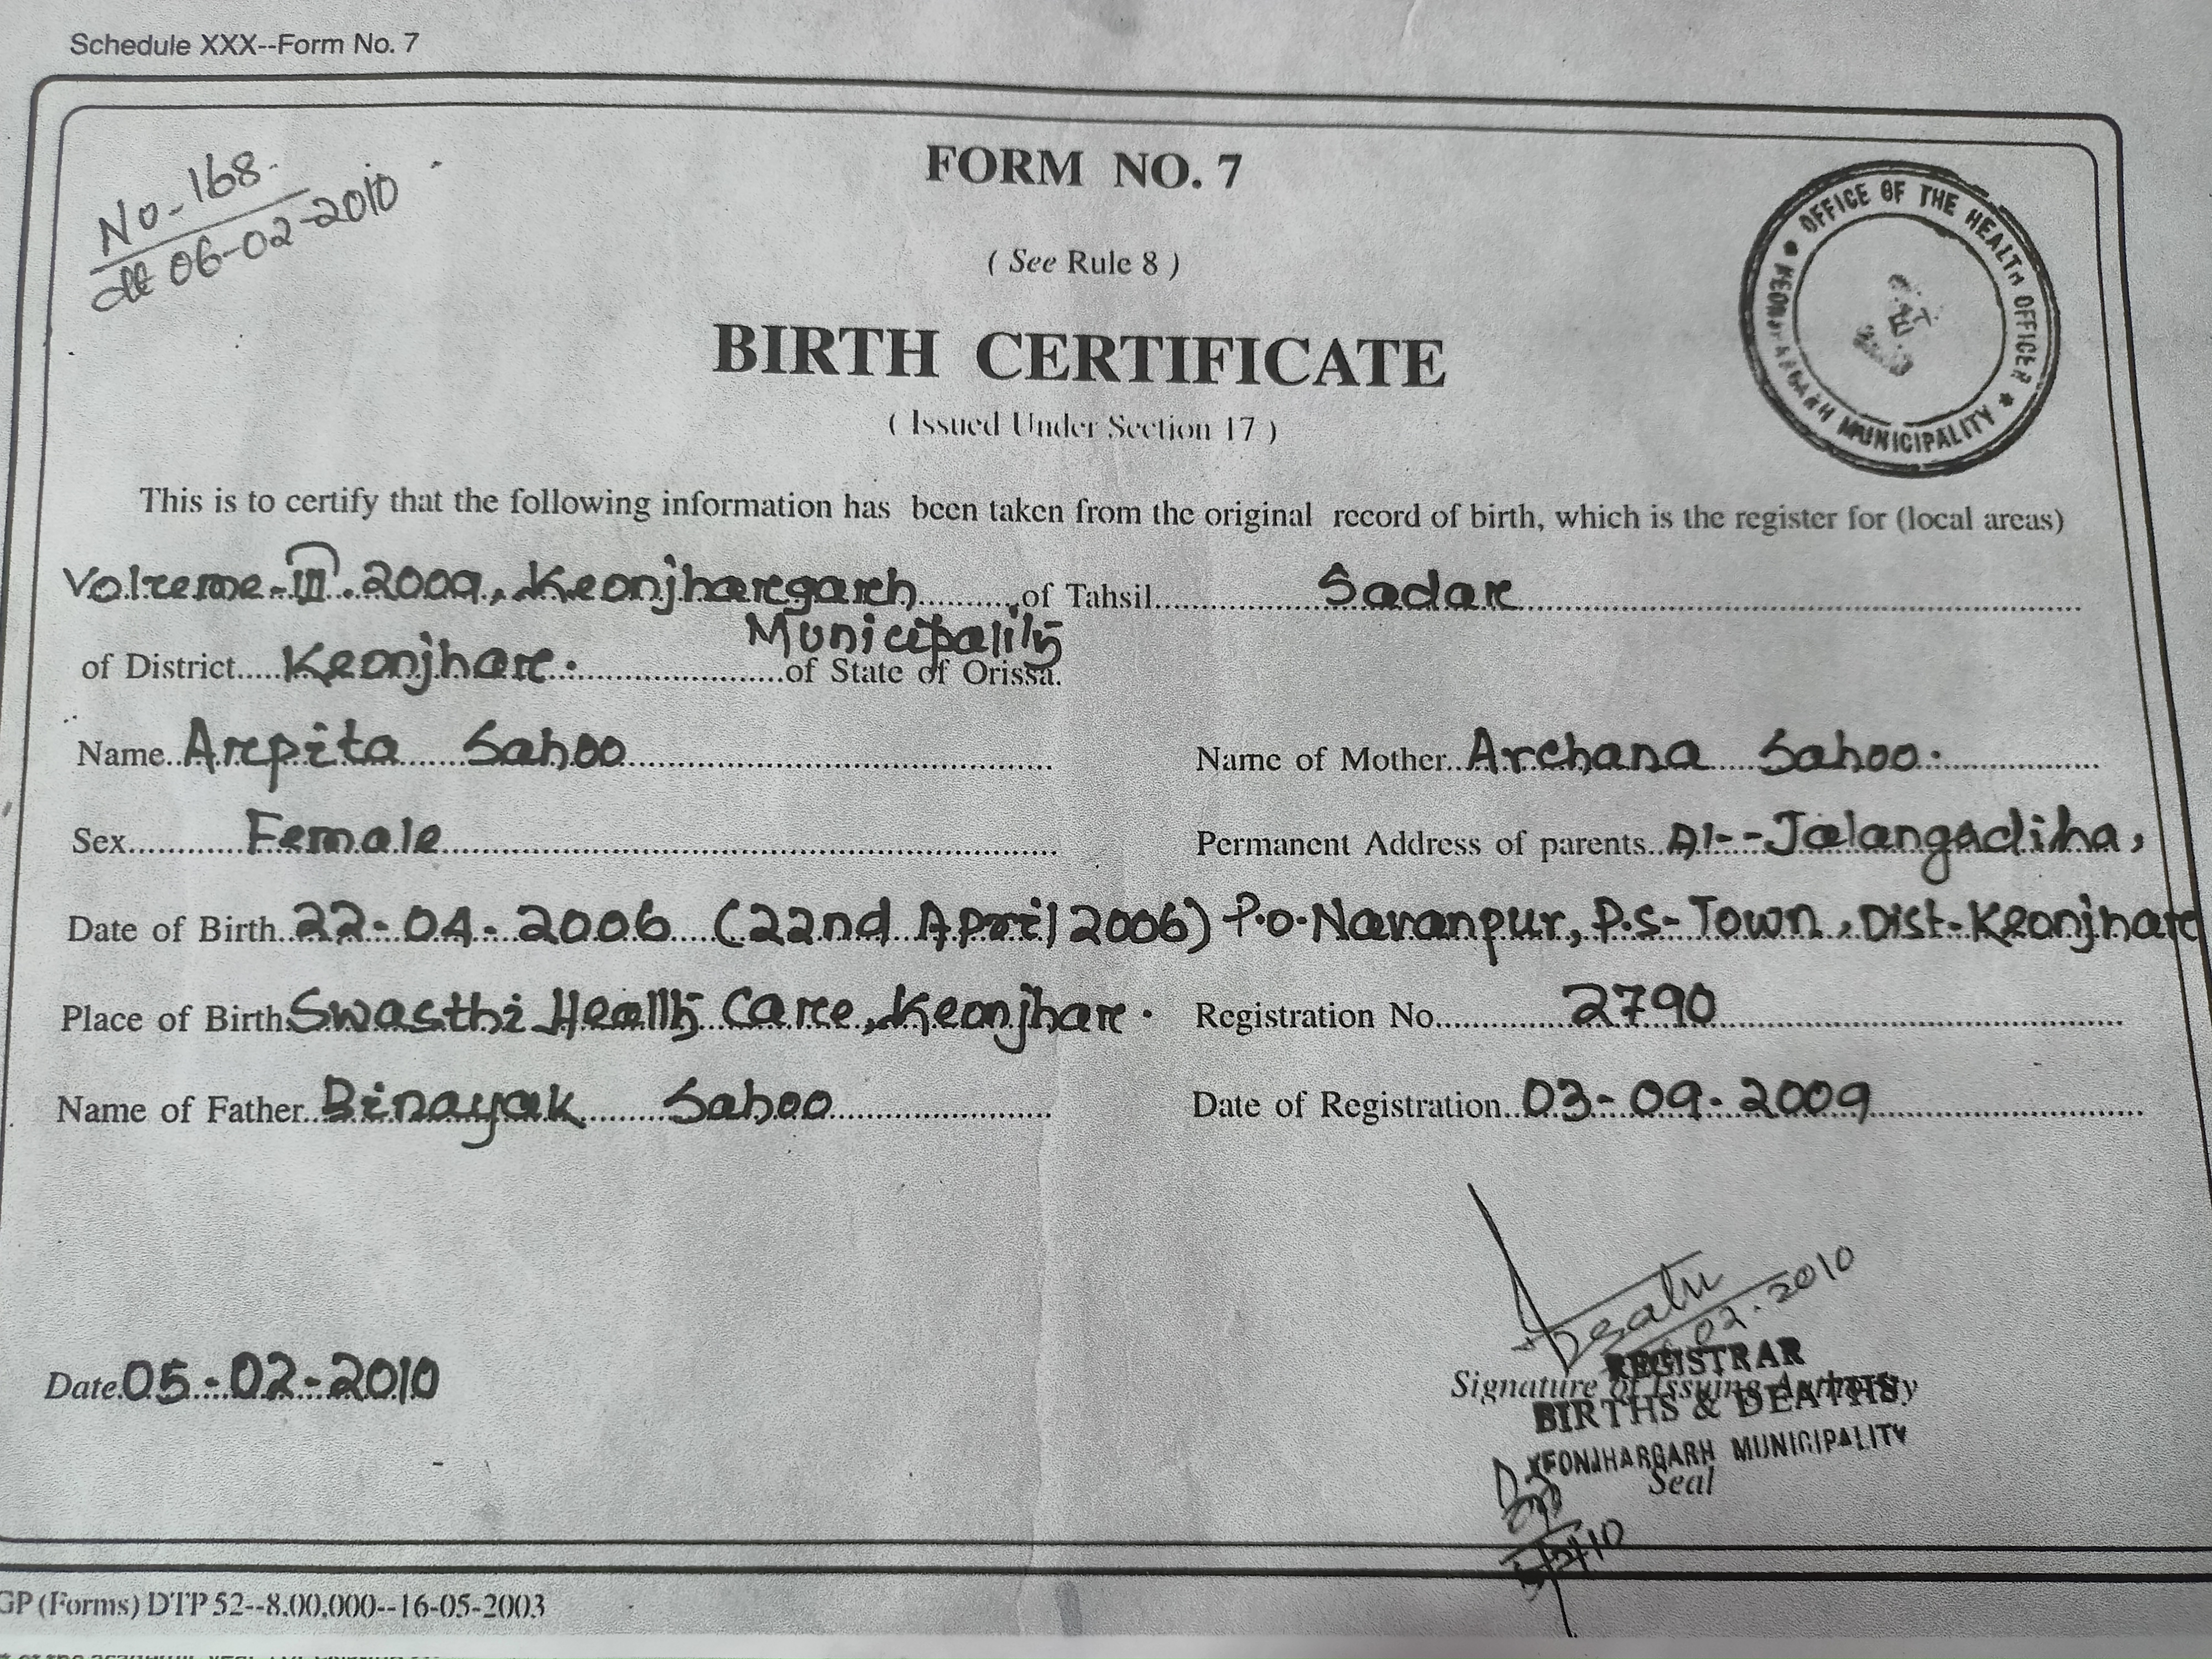 Schedule XXX--Form No. 7
No-168.
dt 06-02-2010
FORM NO. 7
( See Rule 8 )
BIRTH CERTIFICATE
( Issued Under Section 17 )
OFFICE OF THE HEALTH OFFICER * KEONJHARGARH MUNICIPALITY *
This is to certify that the following information has been taken from the original record of birth, which is the register for (local areas)
Volume-III. 2009, Keonjhargarh of Tahsil Sadar
Municipality
of District Keonjhar. of State of Orissa.
Name Arpita Sahoo Name of Mother Archana Sahoo.
Sex Female Permanent Address of parents At--Jalangadiha,
Date of Birth 22-04-2006 (22nd April 2006) P.o-Naranpur, P.S-Town, Dist-Keonjhar
Place of Birth Swasthi Health Care, Keonjhar. Registration No. 2790
Name of Father Binayak Sahoo Date of Registration 03-09-2009
02.2010
REGISTRAR
Date 05-02-2010 Signature of Issuing Authority
BIRTHS & DEATHS
KEONJHARGARH MUNICIPALITY
Seal
5/2/10
GP (Forms) DTP 52--8,00,000--16-05-2003